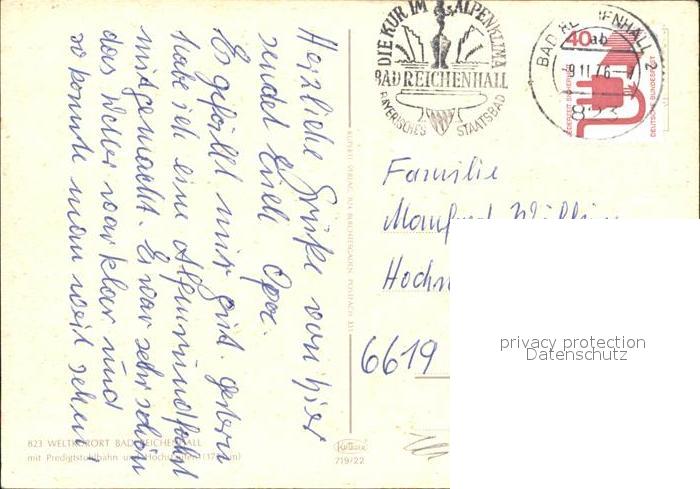 Herzliche Grüße von hier
sendet Euch Opa.
Es gefällt mir gut. gestern
habe ich eine Alpenrundfahrt
mitgemacht. Es war sehr schön
das Wetter war klar und
so konnte man weit sehen
DIE KUR IM ALPENKLIMA
BAD REICHENHALL
BAYERISCHES STAATSBAD
BAD REICHENHALL 2
ab
-9.11.76-
823
40
JEDERZEIT SICHERHEIT
DEUTSCHE BUNDESPOST
Familie
Manfred
6619
privacy protection
Datenschutz
823 WELTKURORT BAD REICHENHALL
mit Predigtstuhlbahn und
719/22